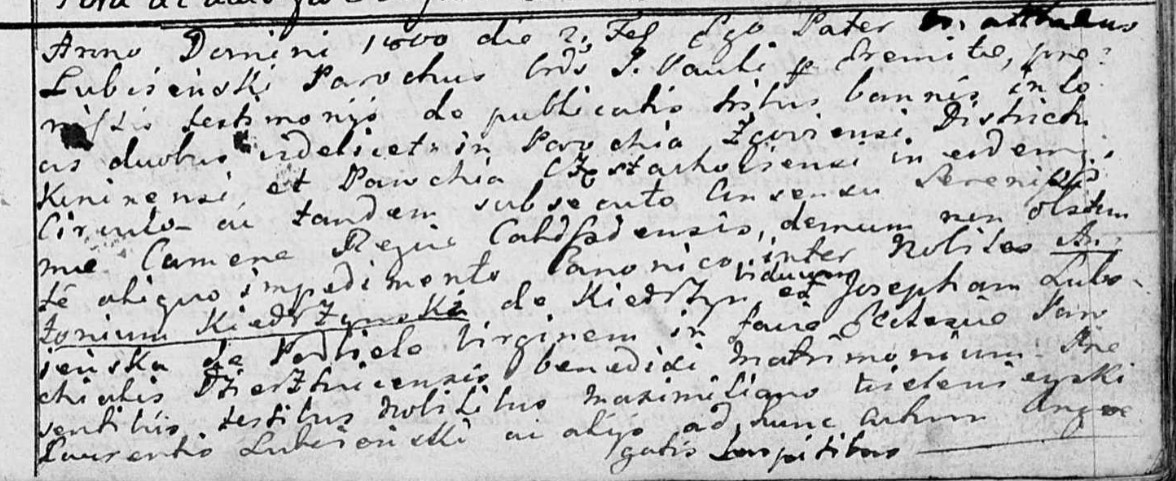 Anno Domini 1800 die 2. Feb Ego Pater Mathaeus
Lubieński Parochus Ords S. Pauli p Eremitę, pre
missis testimonijs de publicatis tribus bannis in lo
cis duobus videlicet in Parochia Zgoviensi Districtu
Kninensi et Parochia Częstachoviensi in eodem
Circulo ac tandem subsecuto Consensu Sereniss
mae Camere Regie Calissiensis, demum non obstan
te aliquo impedimento Canonico inter Nobiles An
tonium Kiedrzynski de Kiedrzyn viduum et Josepham Lubo
jenska de Podlielo Virginem in facie Ecclesie Paro
chialis Dzierznicensis benedixi Matrimonium Pre
sentibus testibus Nobilibus Maximiliano Wielowieyski
Laurentio Lubieński ac alijs ad hunc actum Congre
gatis hospitibus